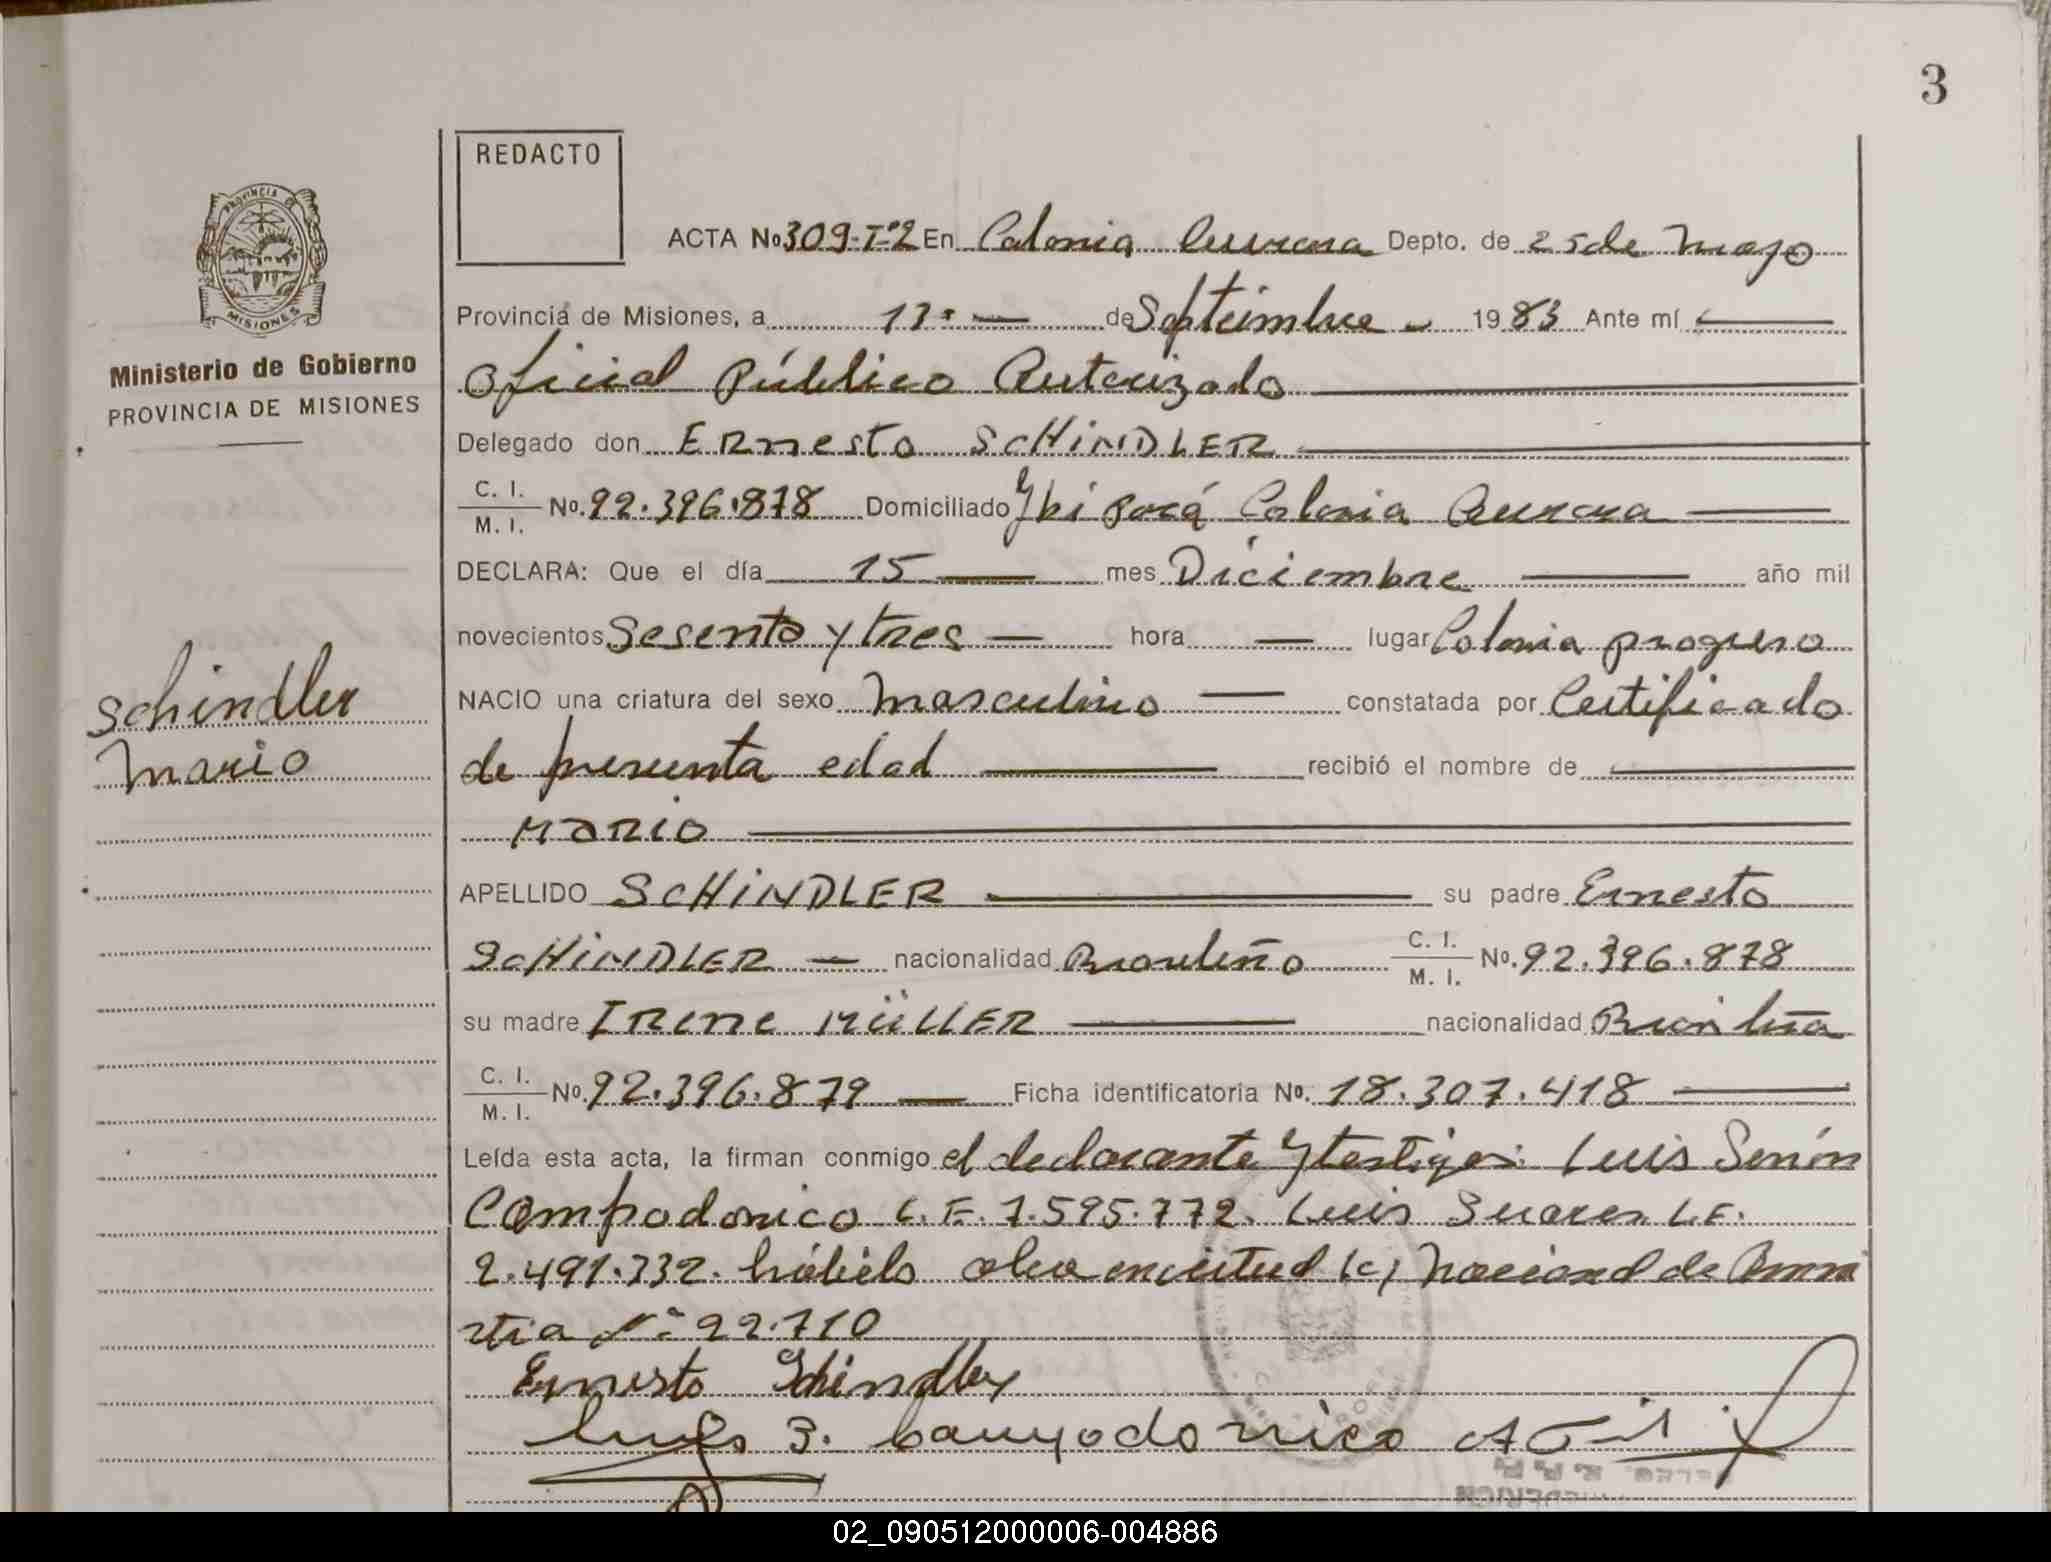 3
REDACTO
ACTA No 309-Tº2 En Colonia Aurora Depto. de 25 de Mayo
PROVINCIA
MISIONES
Provincia de Misiones, a 13 de Septiembre 1983 Ante mí
Ministerio de Gobierno
PROVINCIA DE MISIONES
Oficial Público Autorizado
Delegado don Ernesto SCHINDLER
C. I.
M. I. No. 92.396.878 Domiciliado Ybi porá Colonia Aurora
DECLARA: Que el día 15 mes Diciembre año mil
novecientos Sesenta y tres hora lugar Colonia progreso
Schindler
Mario
NACIO una criatura del sexo Masculino constatada por Certificado
de presunta edad recibió el nombre de
Mario
APELLIDO SCHINDLER su padre Ernesto
SCHINDLER nacionalidad Brasileño C. I.
M. I. No. 92.396.878
su madre Irene MÜLLER nacionalidad Brasileña
C. I.
M. I. No. 92.396.879 Ficha identificatoria No. 18.307.418
Leída esta acta, la firman conmigo el declarante y testigos: Luis Senón
Campodonico L.E. 7.595.772. Luis Suarez L.E.
2.491.732. hábiles obra en virtud Nacional de Amni
stia Nº 22.710
Ernesto Schindler
Luis S. Campodonico
02_090512000006-004886